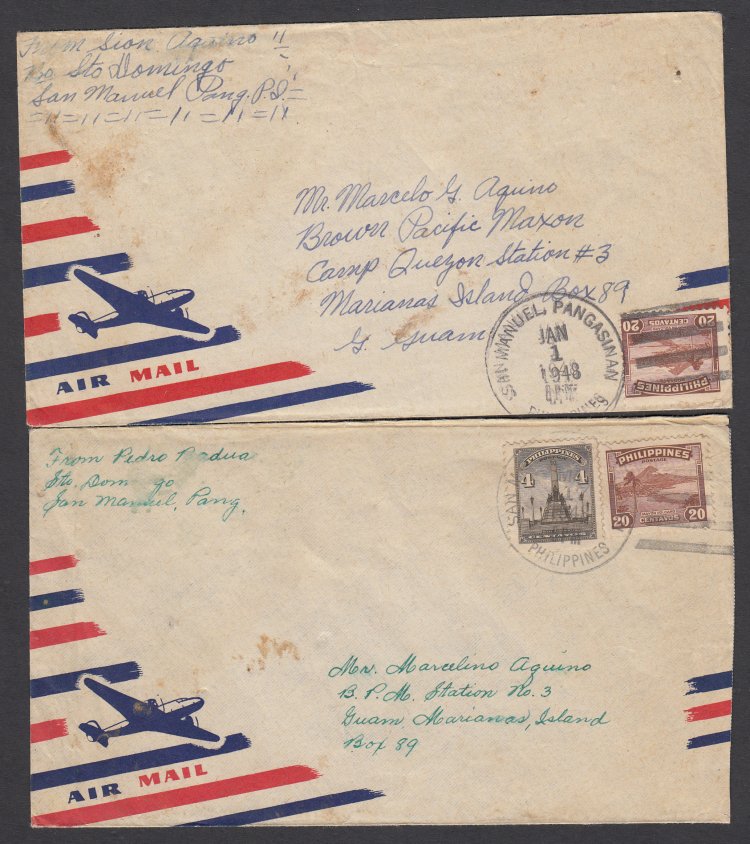 From Sion Aquino
Bo Sto Domingo
San Manuel Pang. P.I.
Mr. Marcelo G. Aquino
Brown Pacific Maxon
Camp Quezon Station #3
Marianas Island Box 89
G. Guam
SAN MANUEL, PANGASINAN
JAN
1
1948
PHILIPPINES
20 20
CENTAVOS
PHILIPPINES
AIR MAIL
From Pedro Padua
Sto. Domingo
San Manuel, Pang.
PHILIPPINES
4 4
CENTAVOS
PHILIPPINES
POSTAGE
20 CENTAVOS 20
SAN
PHILIPPINES
Mr. Marcelino Aquino
B.P.M. Station No. 3
Guam Marianas, Island
Box 89
AIR MAIL